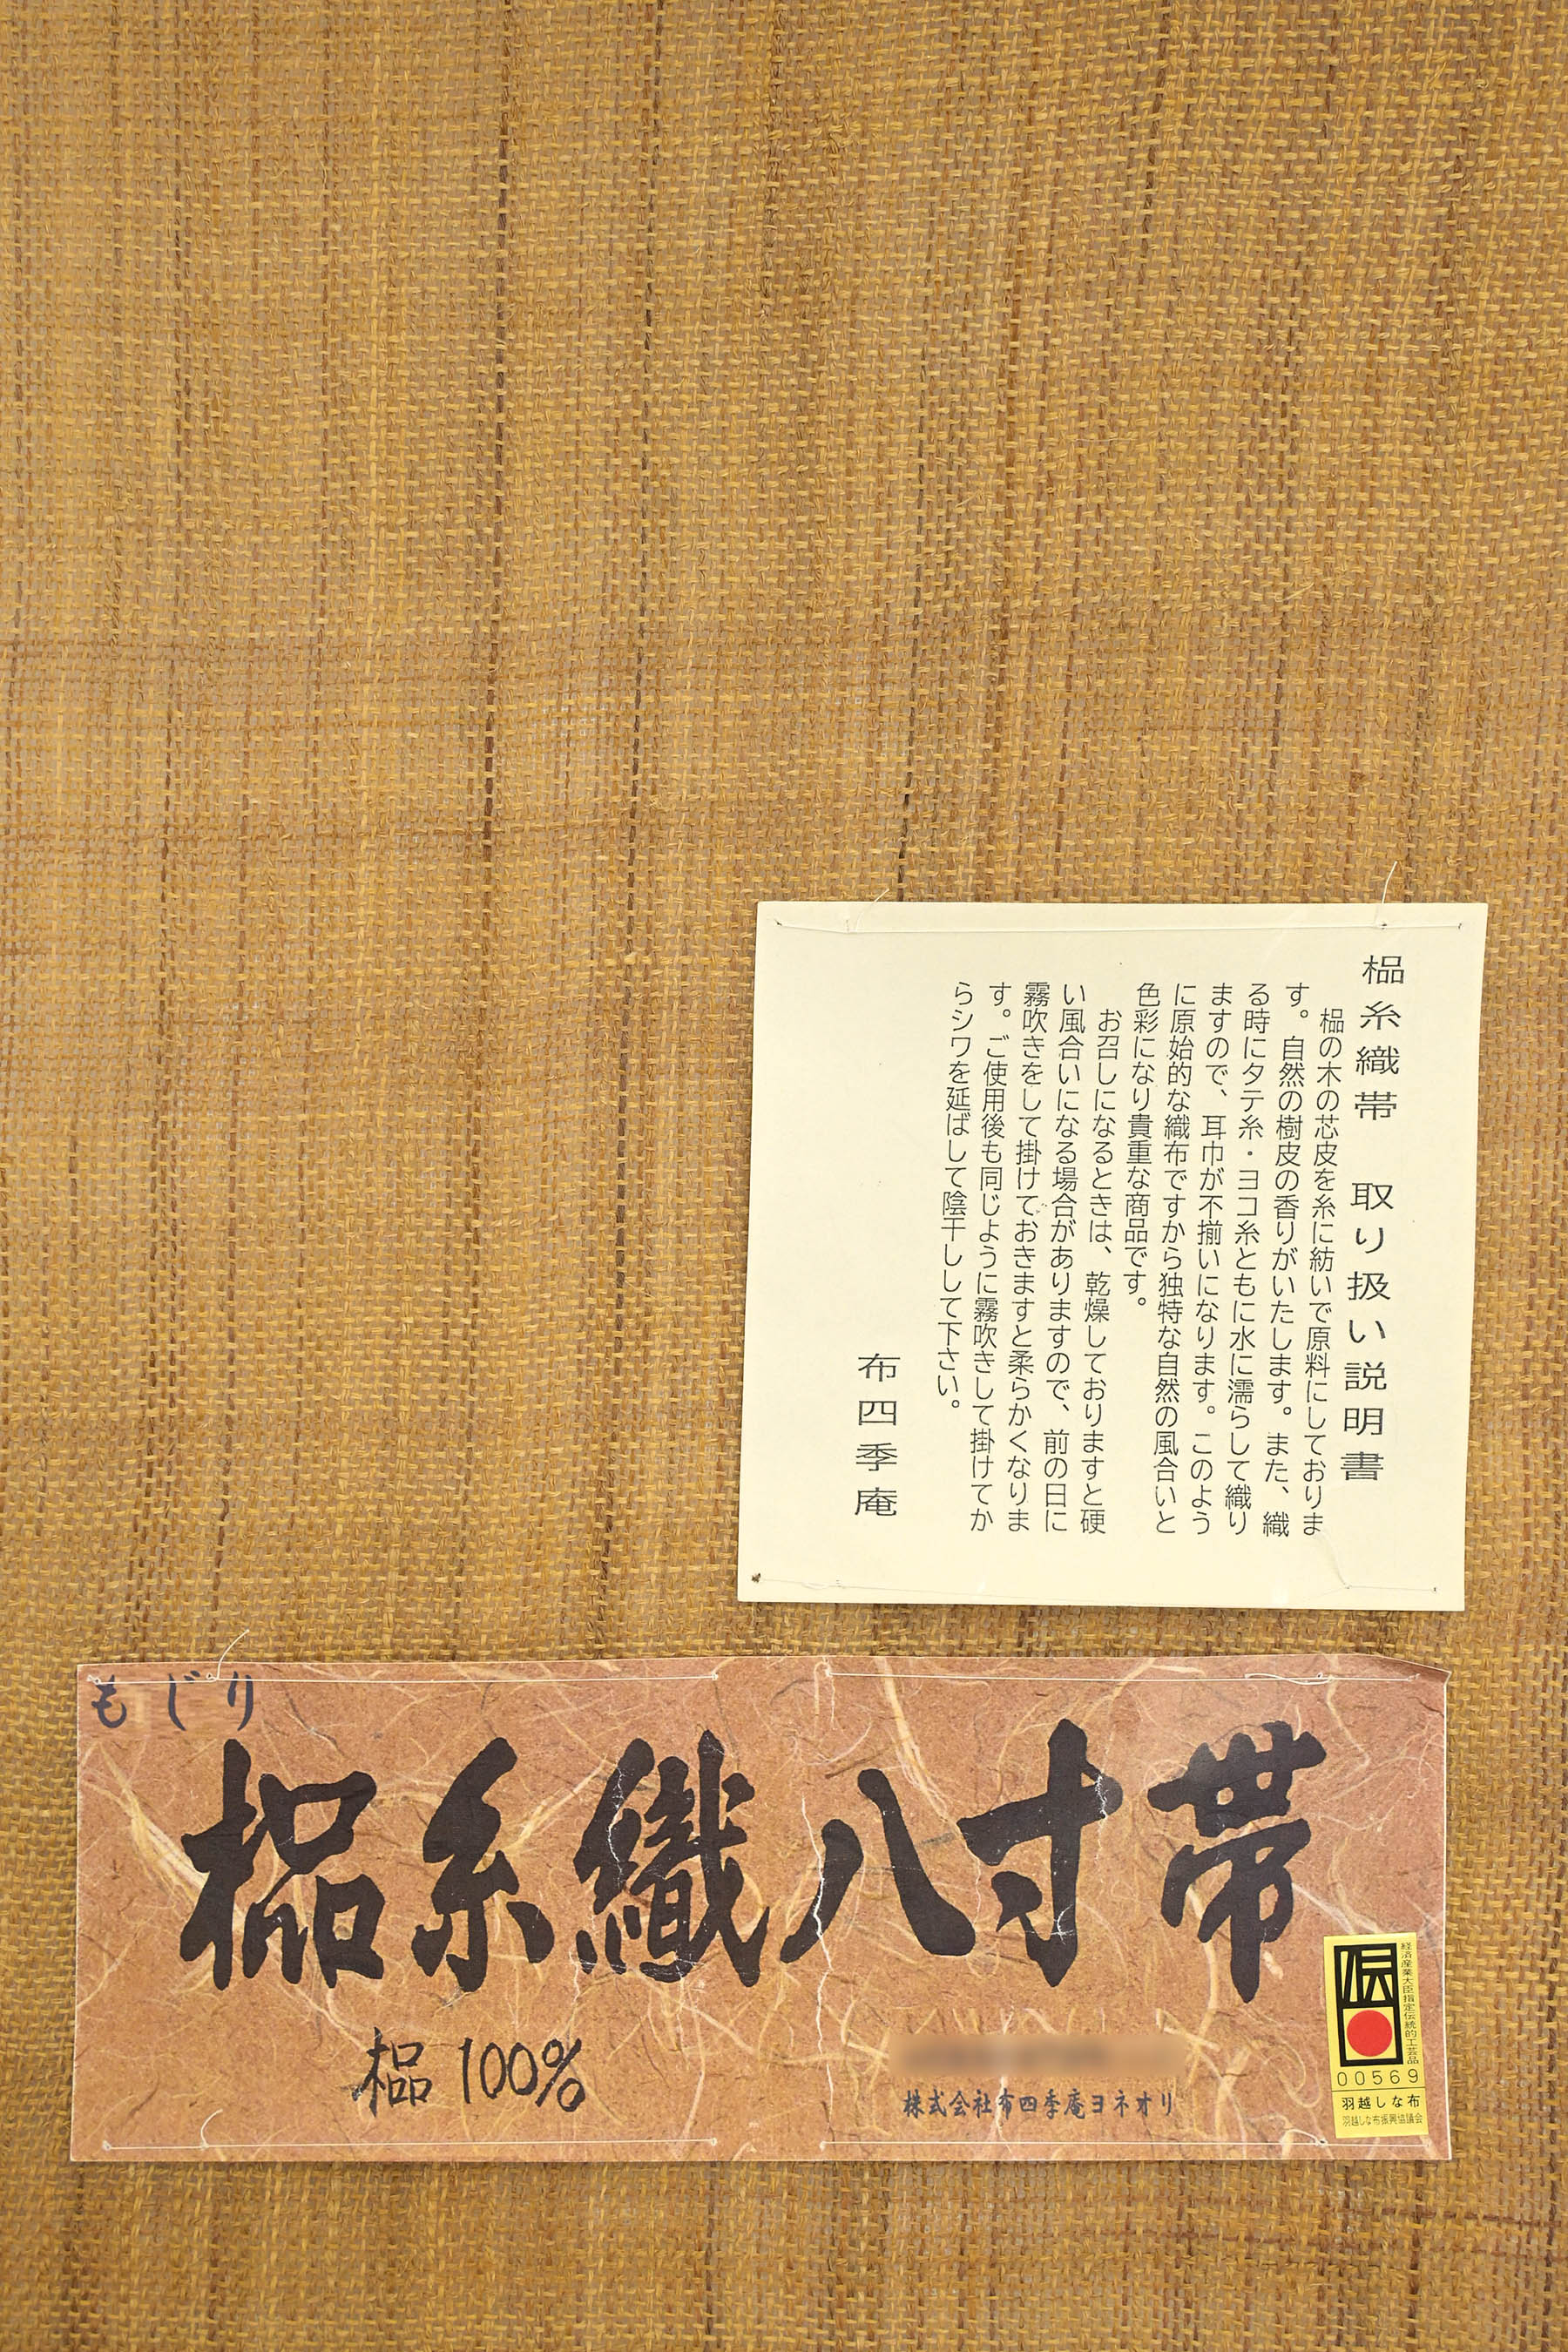 榀糸織帯　取り扱い説明書
榀の木の芯皮を糸に紡いで原料にしておりま
す。自然の樹皮の香りがいたします。また、織
る時にタテ糸・ヨコ糸ともに水に濡らして織り
ますので、耳巾が不揃いになります。このよう
に原始的な織布ですから独特な自然の風合いと
色彩になり貴重な商品です。
お召しになるときは、乾燥しておりますと硬
い風合いになる場合がありますので、前の日に
霧吹きをして掛けておきますと柔らかくなりま
す。ご使用後も同じように霧吹きして掛けてか
らシワを延ばして陰干しして下さい。
布四季庵
もじり
榀糸織八寸帯
榀 100%
株式会社布四季庵ヨネオリ
経済産業大臣指定伝統的工芸品
伝
00569
羽越しな布
羽越しな布振興協議会